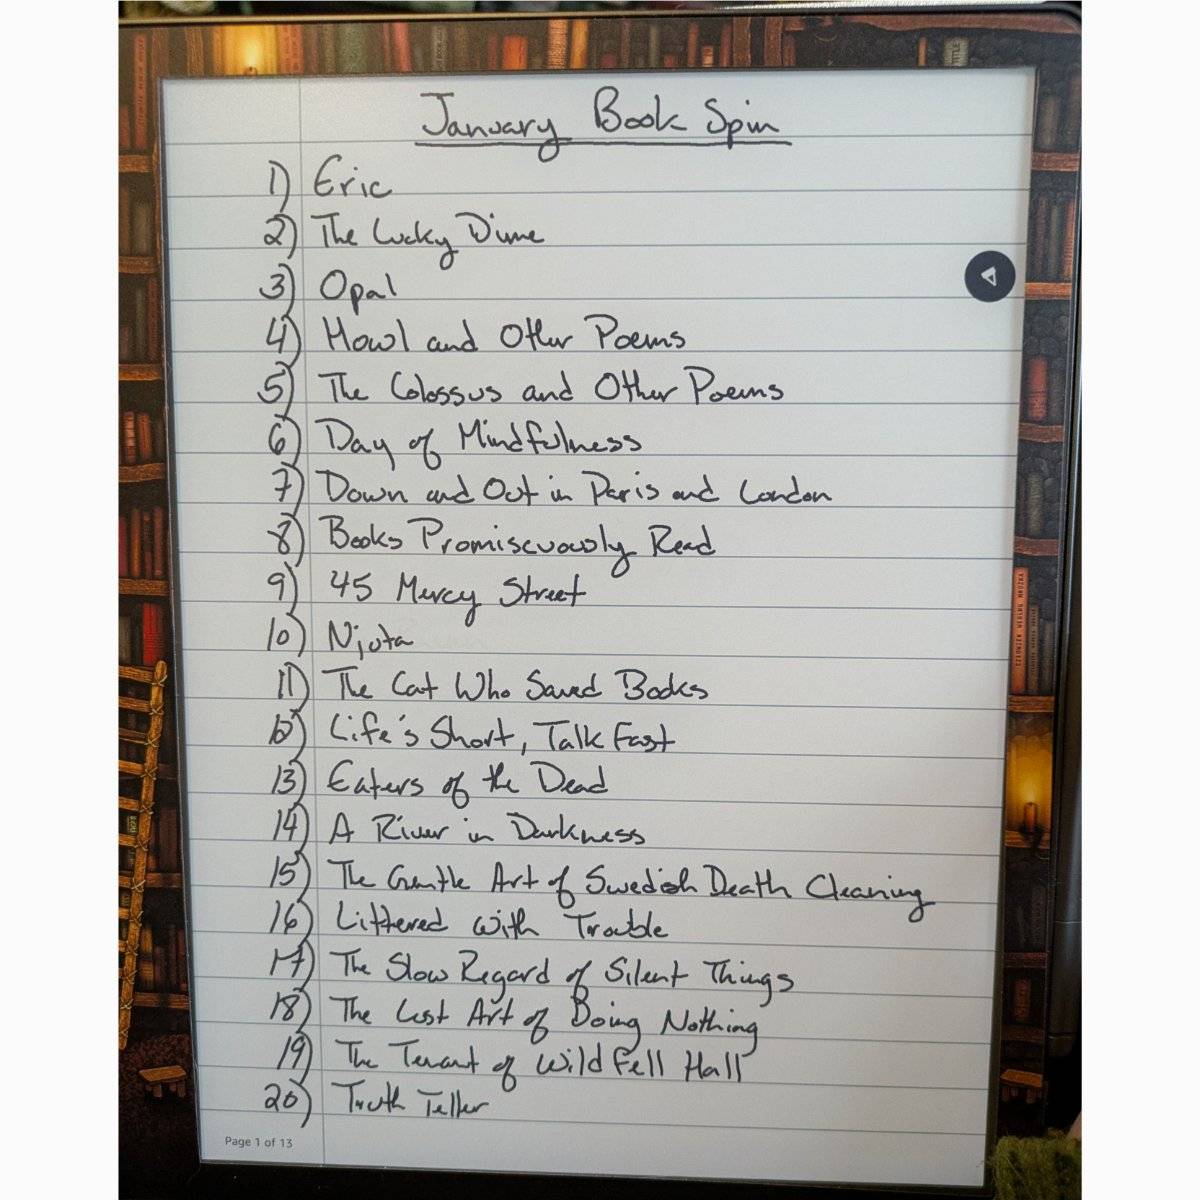 January Book Spin
1) Eric
2) The Lucky Dime
3) Opal
4) Howl and Other Poems
5) The Colossus and Other Poems
6) Day of Mindfulness
7) Down and Out in Paris and London
8) Books Promiscuously Read
9) 45 Mercy Street
10) Njuta
11) The Cat Who Saved Books
12) Life's Short, Talk Fast
13) Eaters of the Dead
14) A River in Darkness
15) The Gentle Art of Swedish Death Cleaning
16) Littered with Trouble
17) The Slow Regard of Silent Things
18) The Lost Art of Doing Nothing
19) The Tenant of Wildfell Hall
20) Truth Teller
Page 1 of 13